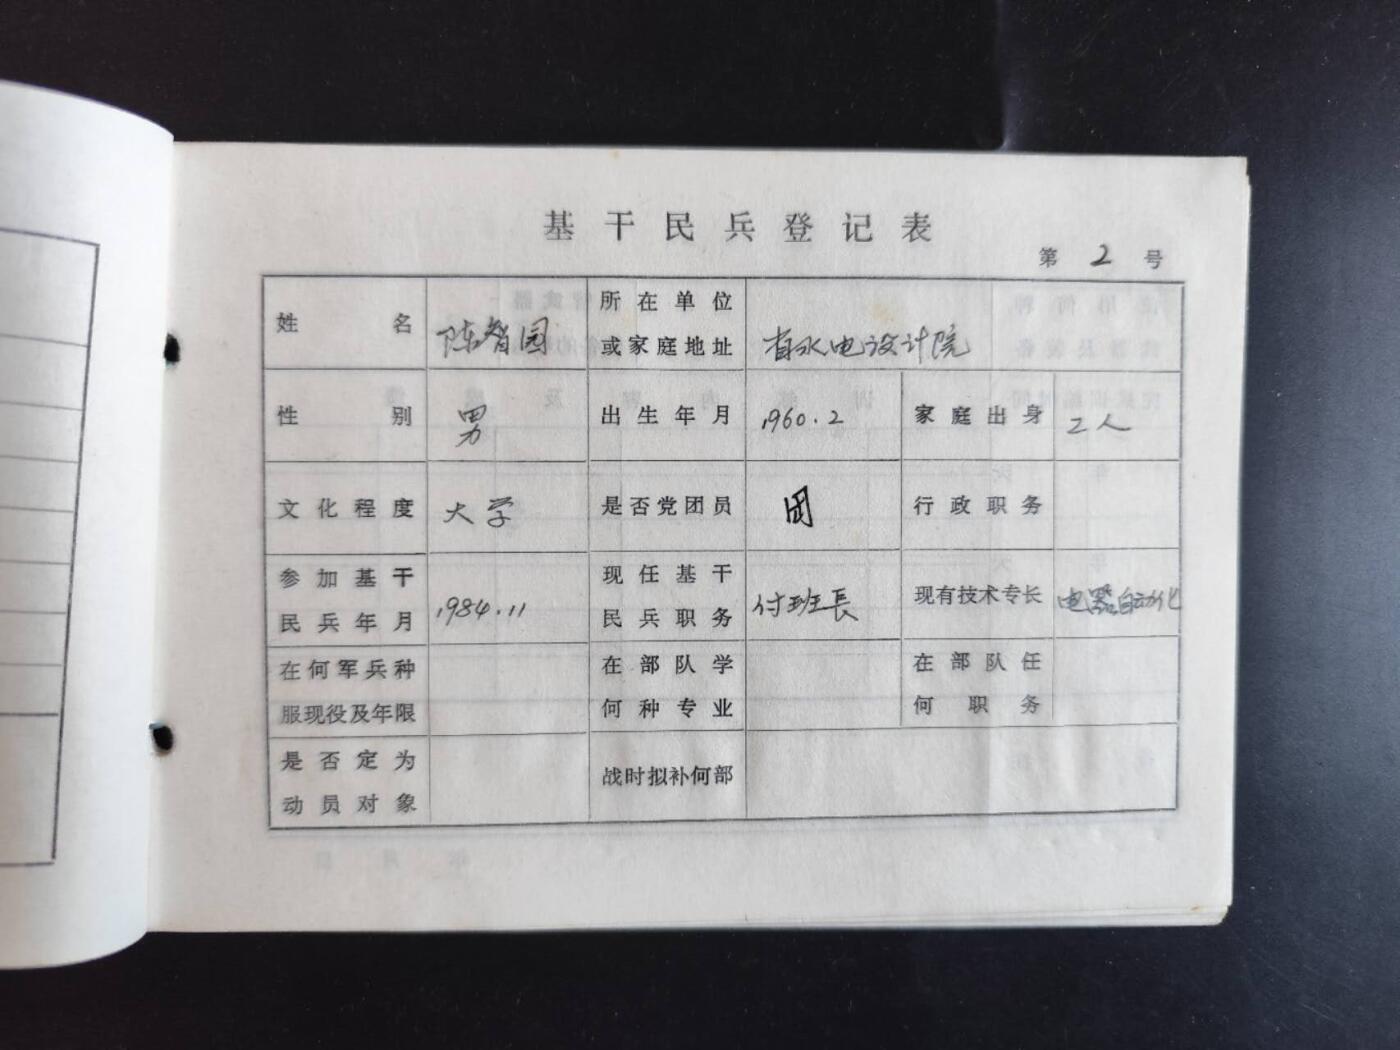 基干民兵登记表
第 2 号
姓名 陈智园 所在单位或家庭地址 省水电设计院
性别 男 出生年月 1960.2 家庭出身 工人
文化程度 大学 是否党团员 团 行政职务
参加基干民兵年月 1984.11 现任基干民兵职务 付班長 现有技术专长 电器自动化
在何军兵种服现役及年限 在部队学何种专业 在部队任何职务
是否定为动员对象 战时拟补何部